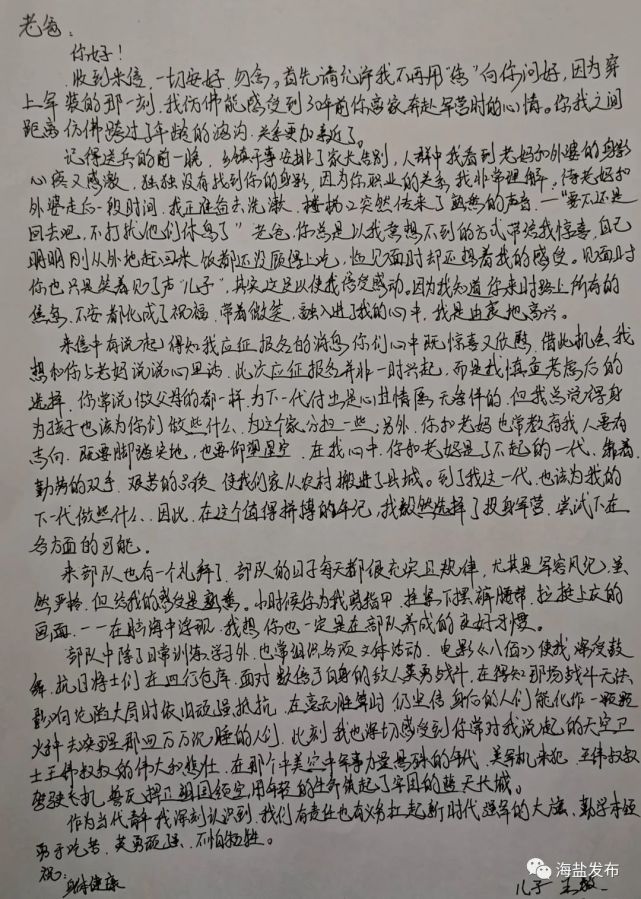 老爸：
你好！
收到来信，一切安好，勿念。首先请允许我不再用"您"向你问好，因为穿
上军装的那一刻，我仿佛能感受到30年前你离家奔赴军营时的心情。你我之间
距离仿佛跨过了年龄的鸿沟，关系更加亲近了。
记得送兵的前一晚，乡镇干事安排了家长告别，人群中我看到老妈和外婆的身影
心疼又感激，独独没有找到你的身影，因为你职业的关系，我非常理解。待老妈和
外婆走后一段时间，我正准备去洗漱，楼梯口突然传来了熟悉的声音，一"要不还是
回去吧，不打扰他们休息了"老爸，你总是以我意想不到的方式带给我惊喜，自己
明明刚从外地赶回来，饭都还没顾得上吃，但见面时却还想着我的感受。见面时
你也只是笑着说了声"儿子"，其实这足以使我倍受感动。因为我知道你来时路上所有的
焦急、不安都化成了祝福，带着微笑，融入进了我的心中，我是由衷地高兴。
来信中有说起得知我应征报名的消息，你们心中既惊喜又欣慰，借此机会，我
想和你与老妈说说心里话，此次应征报名并非一时兴起，而是我慎重考虑后的
选择，你常说做父母的都一样，为下一代付出是心甘情愿、无条件的，但我总觉得身
为孩子也该为你们做些什么，为这个家分担一些；另外，你和老妈也常教育我，人要有
志向，既要脚踏实地，也要仰望星空，在我心中，你和老妈是了不起的一代，靠着
勤劳的双手，艰苦的品质，使我们家从农村搬进了县城。到了我这一代，也该为我的
下一代做些什么，因此，在这个值得拼搏的年纪，我毅然选择了投身军营，尝试下在
各方面的可能。
来部队也有一个礼拜了，部队的日子每天都很充实且规律，尤其是军容风纪，虽
然严格，但给我的感受是熟悉。小时候你为我剪指甲，拴紧下摆裤腰带，拉挺上衣的
画面，一一在脑海中浮现，我想你也一定是在部队养成的良好习惯。
部队中除了日常训练、学习外，也常组织各项文体活动，电影《八佰》使我深受鼓
舞，抗日将士们在四行仓库，面对数倍于自身的敌人英勇战斗，在得知那场战斗无法
影响沦陷大局时依旧顽强抵抗，在毫无胜算时仍坚信身后的人们能化作一颗颗
火种去唤醒那四万万沉睡的人们，此刻，我也深切感受到你常对我说起的天空卫
士王伟叔叔的伟大和悲壮，在那个中美空中军事力量悬殊的年代，美军机来犯，王伟叔叔
驾驶战机，誓死捍卫祖国领空，用年轻的生命筑起了牢固的蓝天长城。
作为当代青年，我深刻认识到，我们有责任也有义务扛起新时代强军的大旗，勤学本领
勇于吃苦，英勇顽强，不怕牺牲。
祝：
身体健康
儿子 王敏
海盐发布